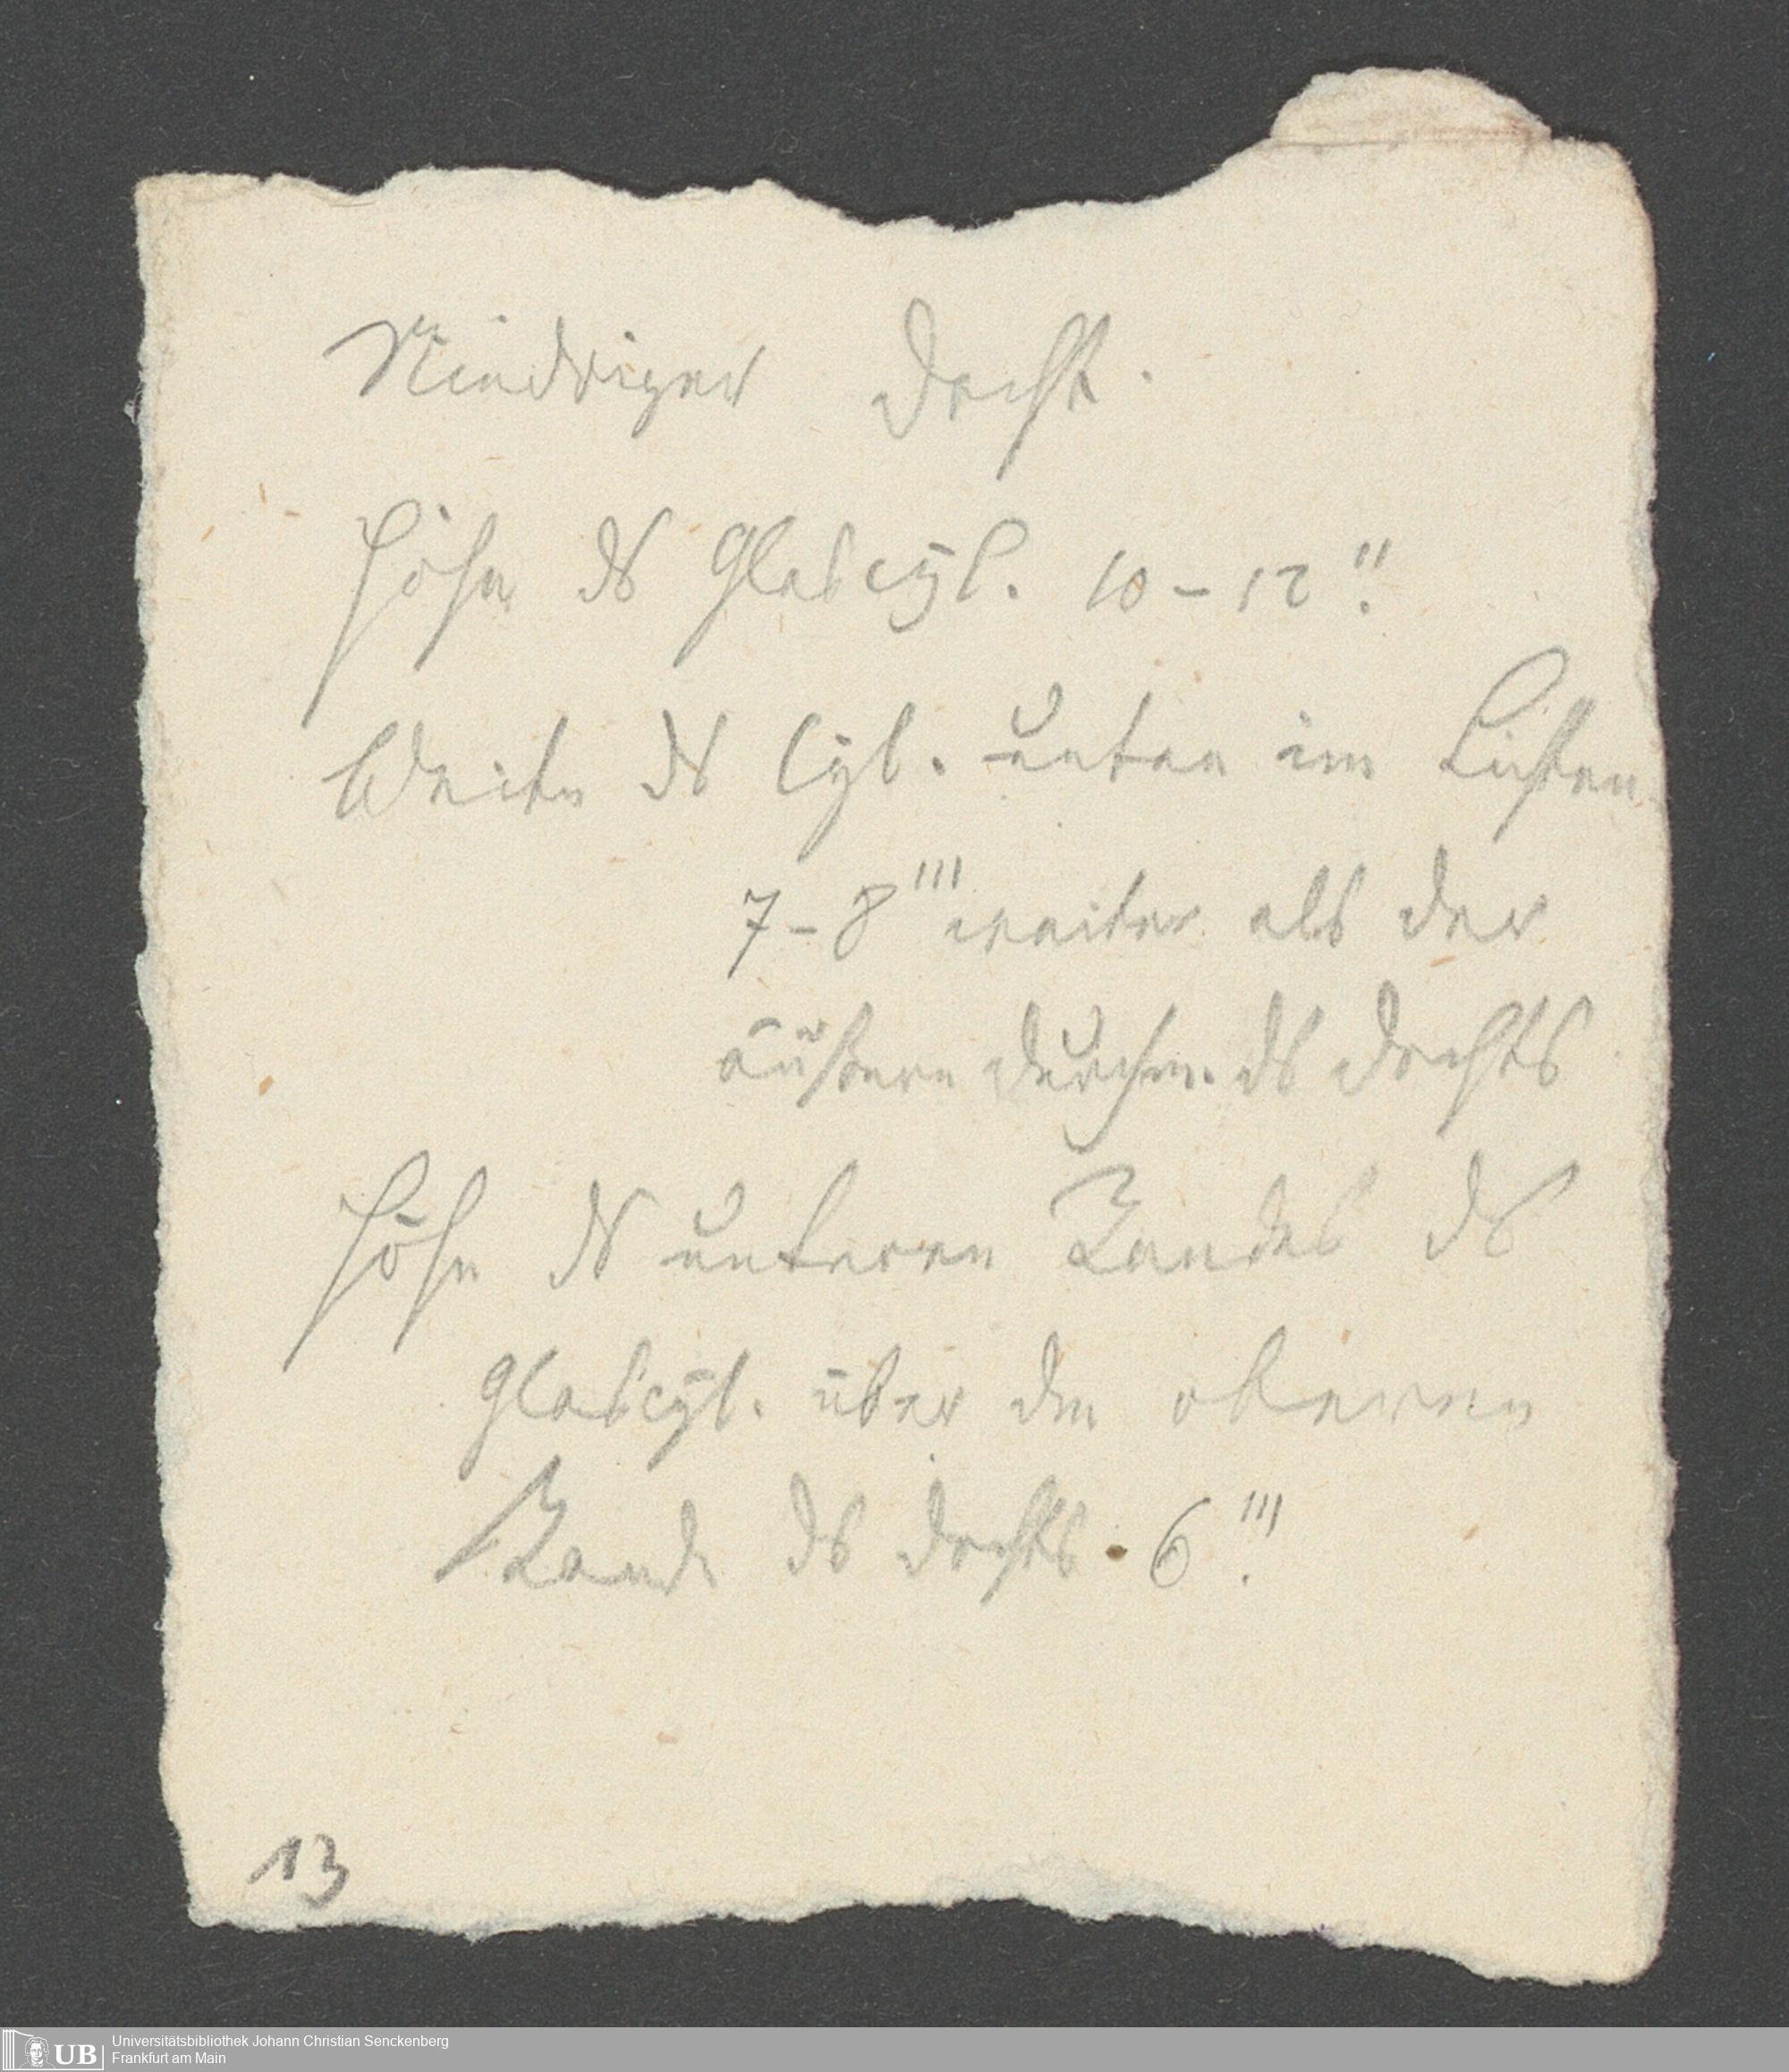 Niedriger Docht.
Höhe ds Glascyl. 10–12".
Weite ds Cyl. unten im Lichten
7–8''' weiter als der
äußere Durchm. ds Dochts
Höhe ds unteren Randes ds
Glascyl. über dem oberen
Rande ds Dochts. 6'''.
13
UB
Universitätsbibliothek Johann Christian Senckenberg
Frankfurt am Main